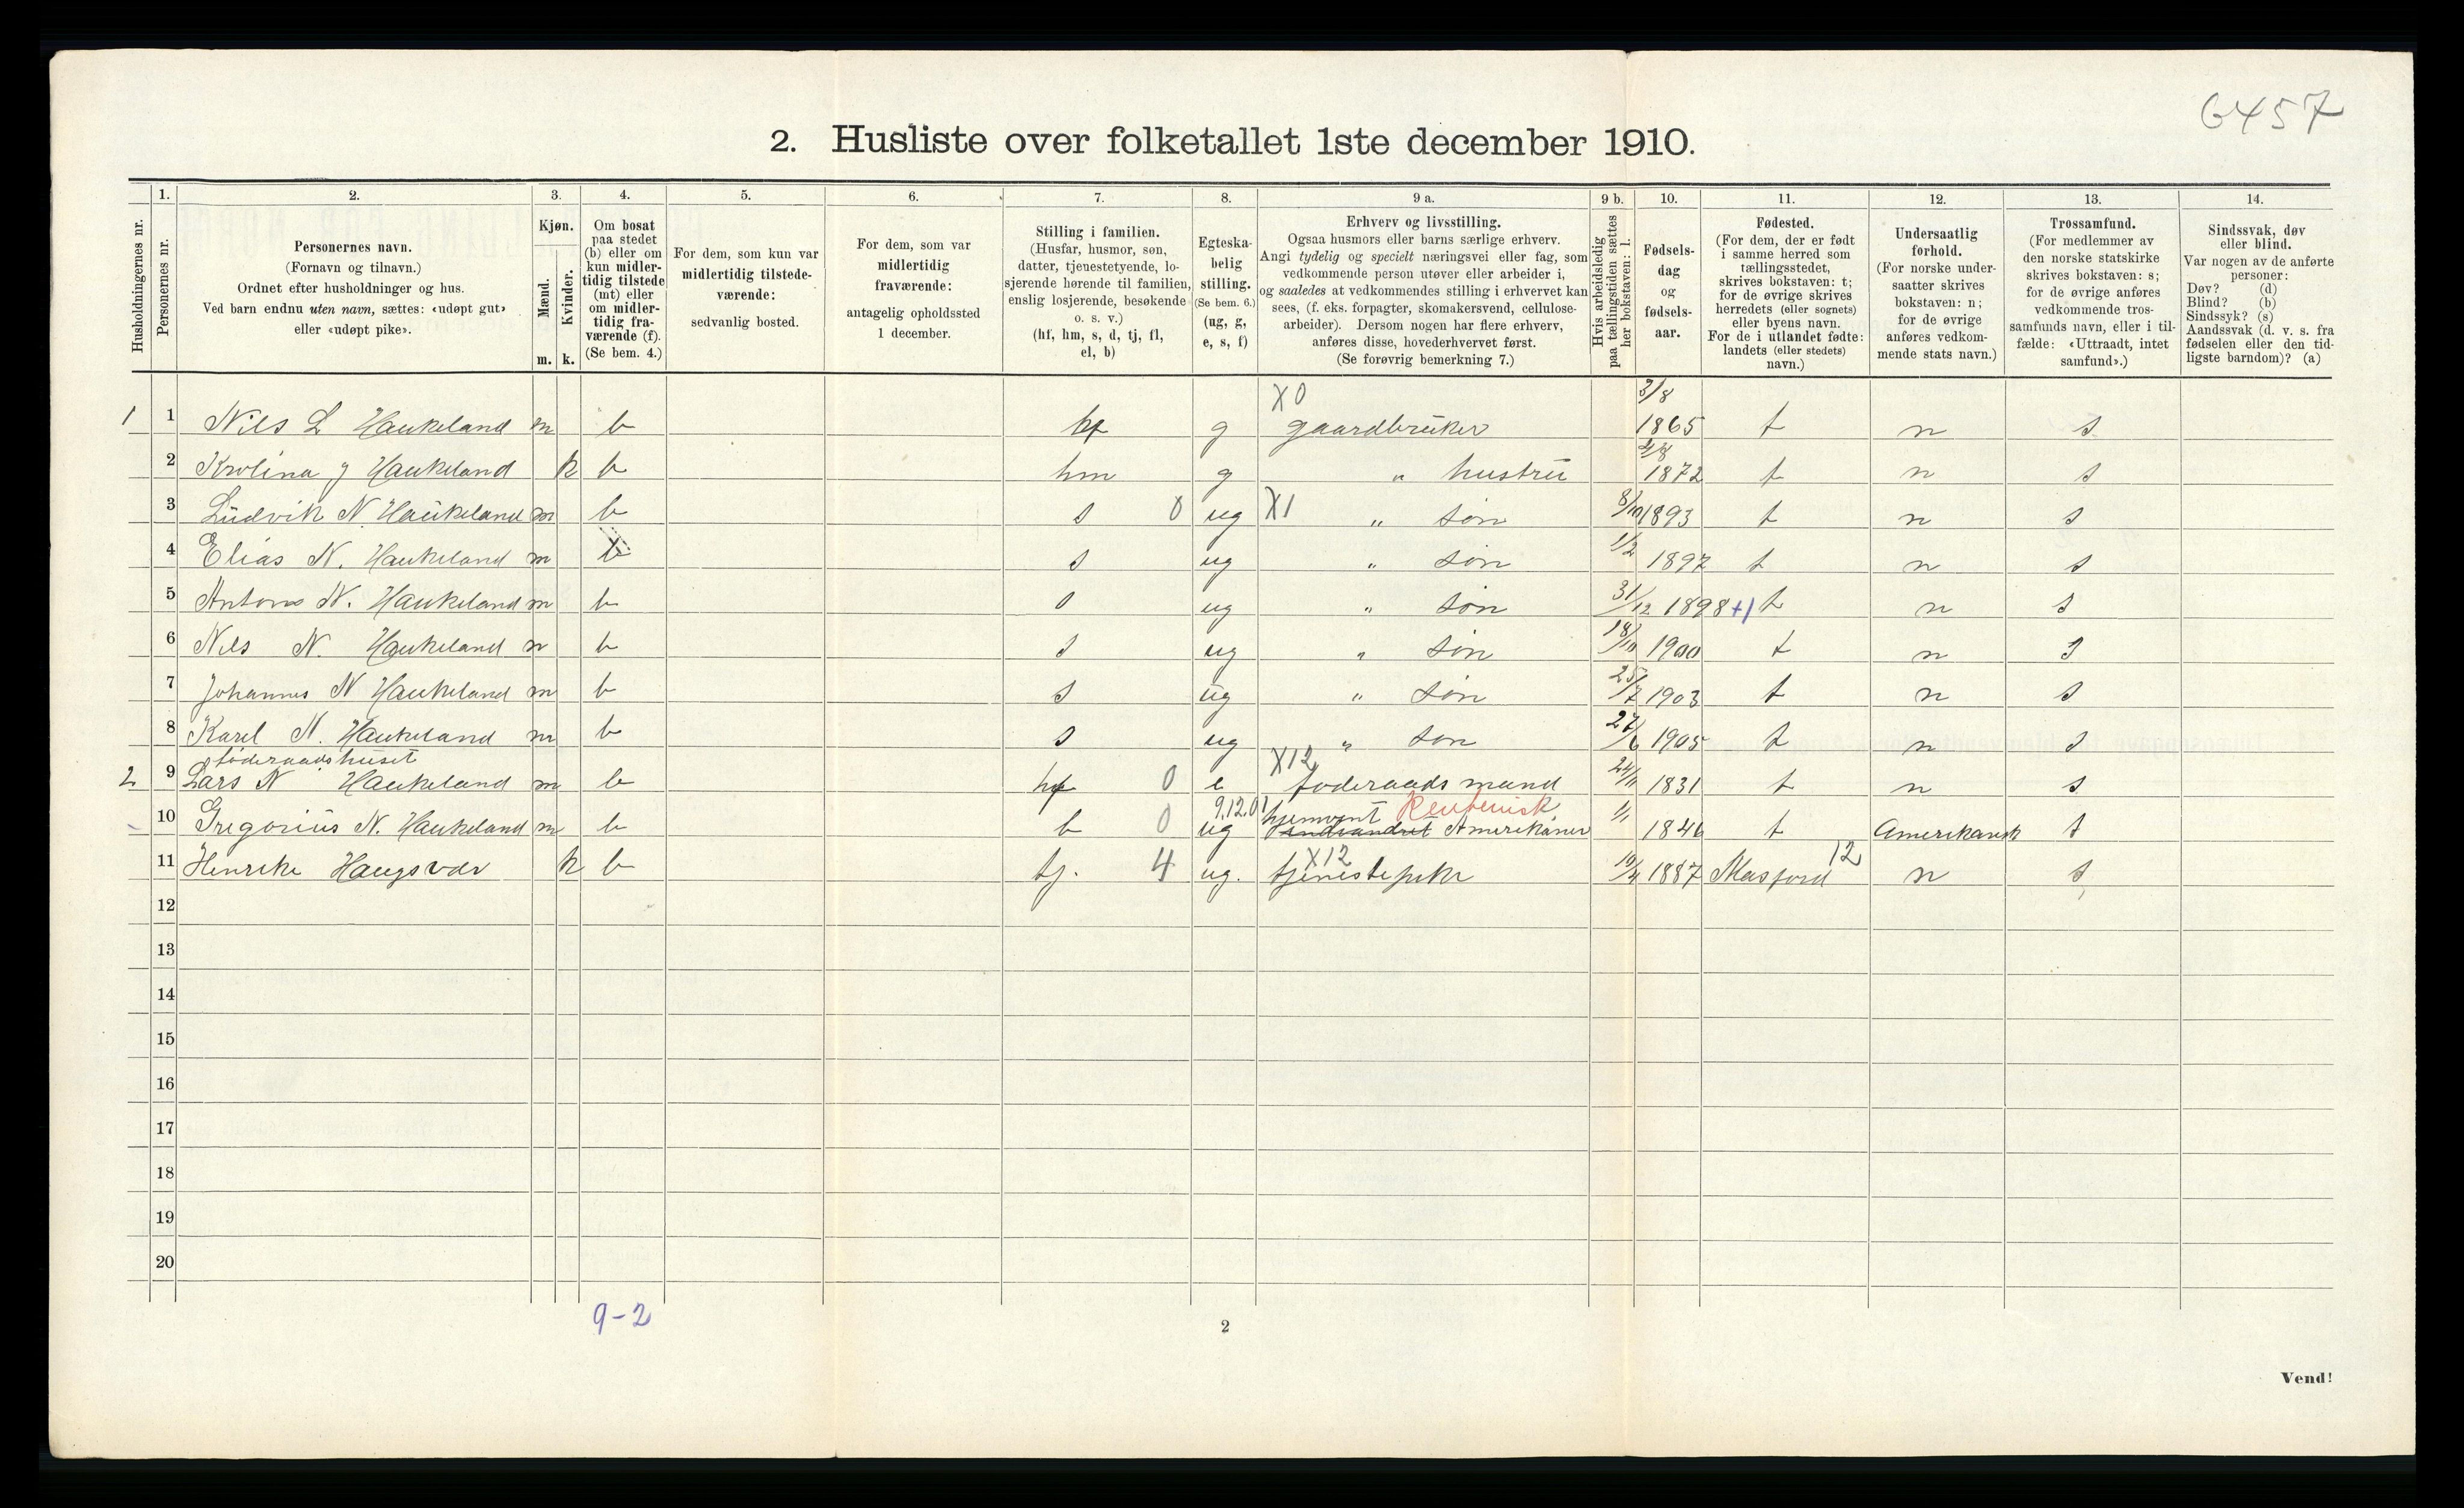 6457
2. Husliste over folketallet 1ste december 1910.
Husholdningernes nr.
1.
Personernes nr.
2.
Personernes navn.
(Fornavn og tilnavn.)
Ordnet efter husholdninger og hus.
Ved barn endnu uten navn, sættes: «udøpt gut»
eller «udøpt pike».
3.
Kjøn.
Mænd.
Kvinder.
m. k.
4.
Om bosat
paa stedet
(b) eller om
kun midler-
tidig tilstede
(mt) eller
om midler-
tidig fra-
værende (f).
(Se bem. 4.)
5.
For dem, som kun var
midlertidig tilstede-
værende:
sedvanlig bosted.
6.
For dem, som var
midlertidig
fraværende:
antagelig opholdssted
1 december.
7.
Stilling i familien.
(Husfar, husmor, søn,
datter, tjenestetyende, lo-
sjerende hørende til familien,
enslig losjerende, besøkende
o. s. v.)
(hf, hm, s, d, tj, fl,
el, b)
8.
Egteska-
belig
stilling.
(Se bem. 6.)
(ug, g,
e, s, f)
9 a.
Erhverv og livsstilling.
Ogsaa husmors eller barns særlige erhverv.
Angi tydelig og specielt næringsvei eller fag, som
vedkommende person utøver eller arbeider i,
og saaledes at vedkommendes stilling i erhvervet kan
sees, (f. eks. forpagter, skomakersvend, cellulose-
arbeider). Dersom nogen har flere erhverv,
anføres disse, hovederhvervet først.
(Se forøvrig bemerkning 7.)
9 b.
Hvis arbeidsledig
paa tællingstiden sættes
her bokstaven: l.
10.
Fødsels-
dag
og
fødsels-
aar.
11.
Fødested.
(For dem, der er født
i samme herred som
tællingsstedet,
skrives bokstaven: t;
for de øvrige skrives
herredets (eller sognets)
eller byens navn.
For de i utlandet fødte:
landets (eller stedets)
navn.)
12.
Undersaatlig
forhold.
(For norske under-
saatter skrives
bokstaven: n;
for de øvrige
anføres vedkom-
mende stats navn.)
13.
Trossamfund.
(For medlemmer av
den norske statskirke
skrives bokstaven: s;
for de øvrige anføres
vedkommende tros-
samfunds navn, eller i til-
fælde: «Uttraadt, intet
samfund».)
14.
Sindssvak, døv
eller blind.
Var nogen av de anførte
personer:
Døv? (d)
Blind? (b)
Sindssyk? (s)
Aandssvak (d. v. s. fra
fødselen eller den tid-
ligste barndom)? (a)
X0 3/8
1 1 Nils L Haukeland m b hf g gaardbruker 1865 t n s
2 Krolina J Haukeland k b hm g " hustru 1872 t n s
3 Ludvik N. Haukeland m b s 0 ug X1 " søn 8/10 1893 t n s
4 Elias N. Haukeland m b s ug " søn 1/2 1897 t n s
5 Anton N. Haukeland m b s ug " søn 31/12 1898 +1 t n s
6 Nils N. Haukeland m b s ug " søn 18/10 1900 t n s
7 Johannes N Haukeland m b s ug " søn 25/7 1903 t n s
8 Karel N. Haukeland m b s ug " søn 27/6 1905 t n s
føderaadshuset X12
2 9 Lars N Haukeland m b hf 0 e føderaads mand 24/11 1831 t n s
9.12.01 hjemvent
10 Gregorius N. Haukeland m b b 0 ug indvandret Amerikaner 1/1 1846 t Amerikansk s
X12 12
11 Henrike Haugsvær k b tj. 4 ug. tjenestepike 19/4 1887 Masfjord n s
12
13
14
15
16
17
18
19
20
9-2
2
Vend!